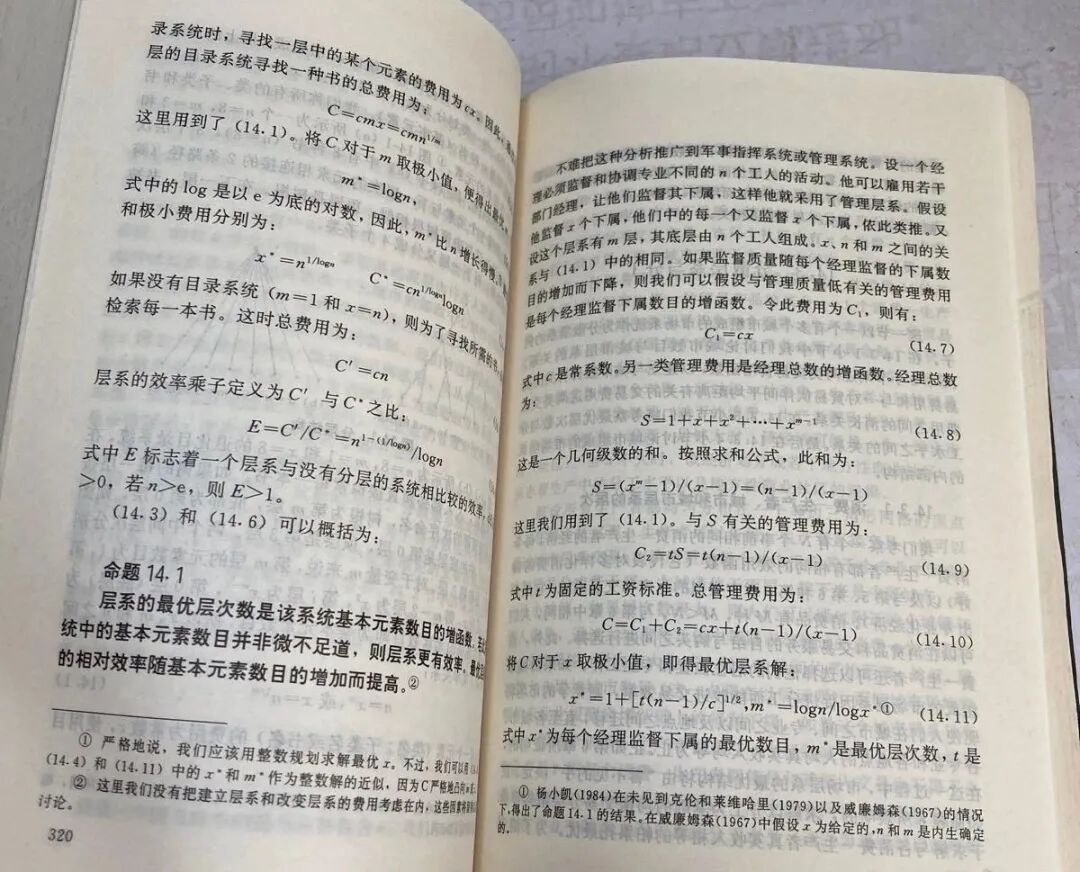 录系统时，寻找一层中的某个元素的费用为cx。因此，
层的目录系统寻找一种书的总费用为：
C=cmx=cmn^{1/m}
这里用到了（14.1）。将C对于m取极小值，便得出最优
m*=logn，
式中的log是以e为底的对数，因此，m*比n增长得慢。
和极小费用分别为：
x*=n^{1/logn} C*=cn^{1/logn}logn
如果没有目录系统（m=1和x=n），则为了寻找所需的书，
检索每一本书。这时总费用为：
C′=cn
层系的效率乘子定义为C′与C*之比：
E=C′/C*=n^{1-(1/logn)}/logn
式中E标志着一个层系与没有分层的系统相比较的效率，
>0，若n>e，则E>1。
（14.3）和（14.6）可以概括为：
命题14.1
层系的最优层次数是该系统基本元素数目的增函数。若
统中的基本元素数目并非微不足道，则层系更有效率。最优
的相对效率随基本元素数目的增加而提高。②
① 严格地说，我们应该用整数规划求解最优x。不过，我们可以用
（14.4）和（14.11）中的x*和m*作为整数解的近似，因为C严格地凸向
② 这里我们没有把建立层系和改变层系的费用考虑在内，这些因素将
讨论。
320
不难把这种分析推广到军事指挥系统或管理系统。设一个经
理必须监督和协调专业不同的n个工人的活动。他可以雇用若干
部门经理，让他们监督其下属，这样他就采用了管理层系。假设
他监督x个下属，他们中的每一个又监督x个下属，依此类推。又
设这个层系有m层，其底层由n个工人组成。x、n和m之间的关
系与（14.1）中的相同。如果监督质量随每个经理监督的下属数
目的增加而下降，则我们可以假设与管理质量低有关的管理费用
是每个经理监督下属数目的增函数。令此费用为C₁，则有：
C₁=cx (14.7)
式中c是常系数。另一类管理费用是经理总数的增函数。经理总数
为：
S=1+x+x²+…+x^{m-1} (14.8)
这是一个几何级数的和。按照求和公式，此和为：
S=(x^m-1)/(x-1)=(n-1)/(x-1)
这里我们用到了（14.1）。与S有关的管理费用为：
C₂=tS=t(n-1)/(x-1) (14.9)
式中t为固定的工资标准。总管理费用为：
C=C₁+C₂=cx+t(n-1)/(x-1) (14.10)
将C对于x取极小值，即得最优层系解：
x*=1+[t(n-1)/c]^{1/2}，m*=logn/logx*① (14.11)
式中x*为每个经理监督下属的最优数目，m*是最优层次数，t是
① 杨小凯(1984)在未见到克伦和莱维哈里(1979)以及威廉姆森(1967)的情况
下，得出了命题14.1的结果。在威廉姆森(1967)中假设x为给定的，n和m是内生确定
的。